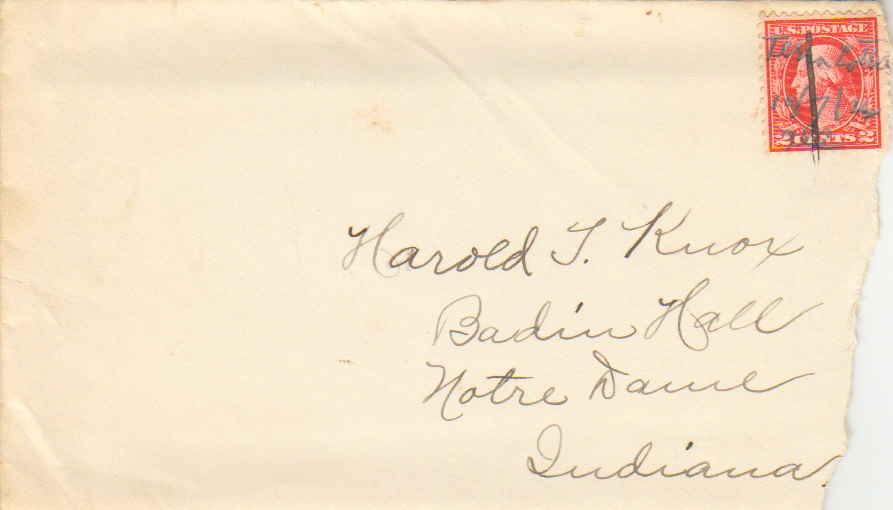 U.S. POSTAGE
2 CENTS 2
Harold T. Knox
Badin Hall
Notre Dame
Indiana.